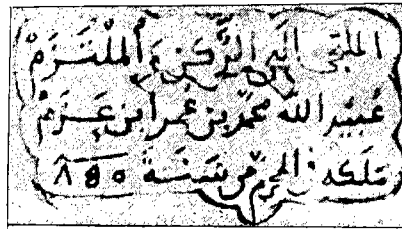 الملتجئ إلى الركن والملتزم
عبيد الله محمد بن عمر ابن عزم
ملكه في المحرم من سنة ٨٥٥